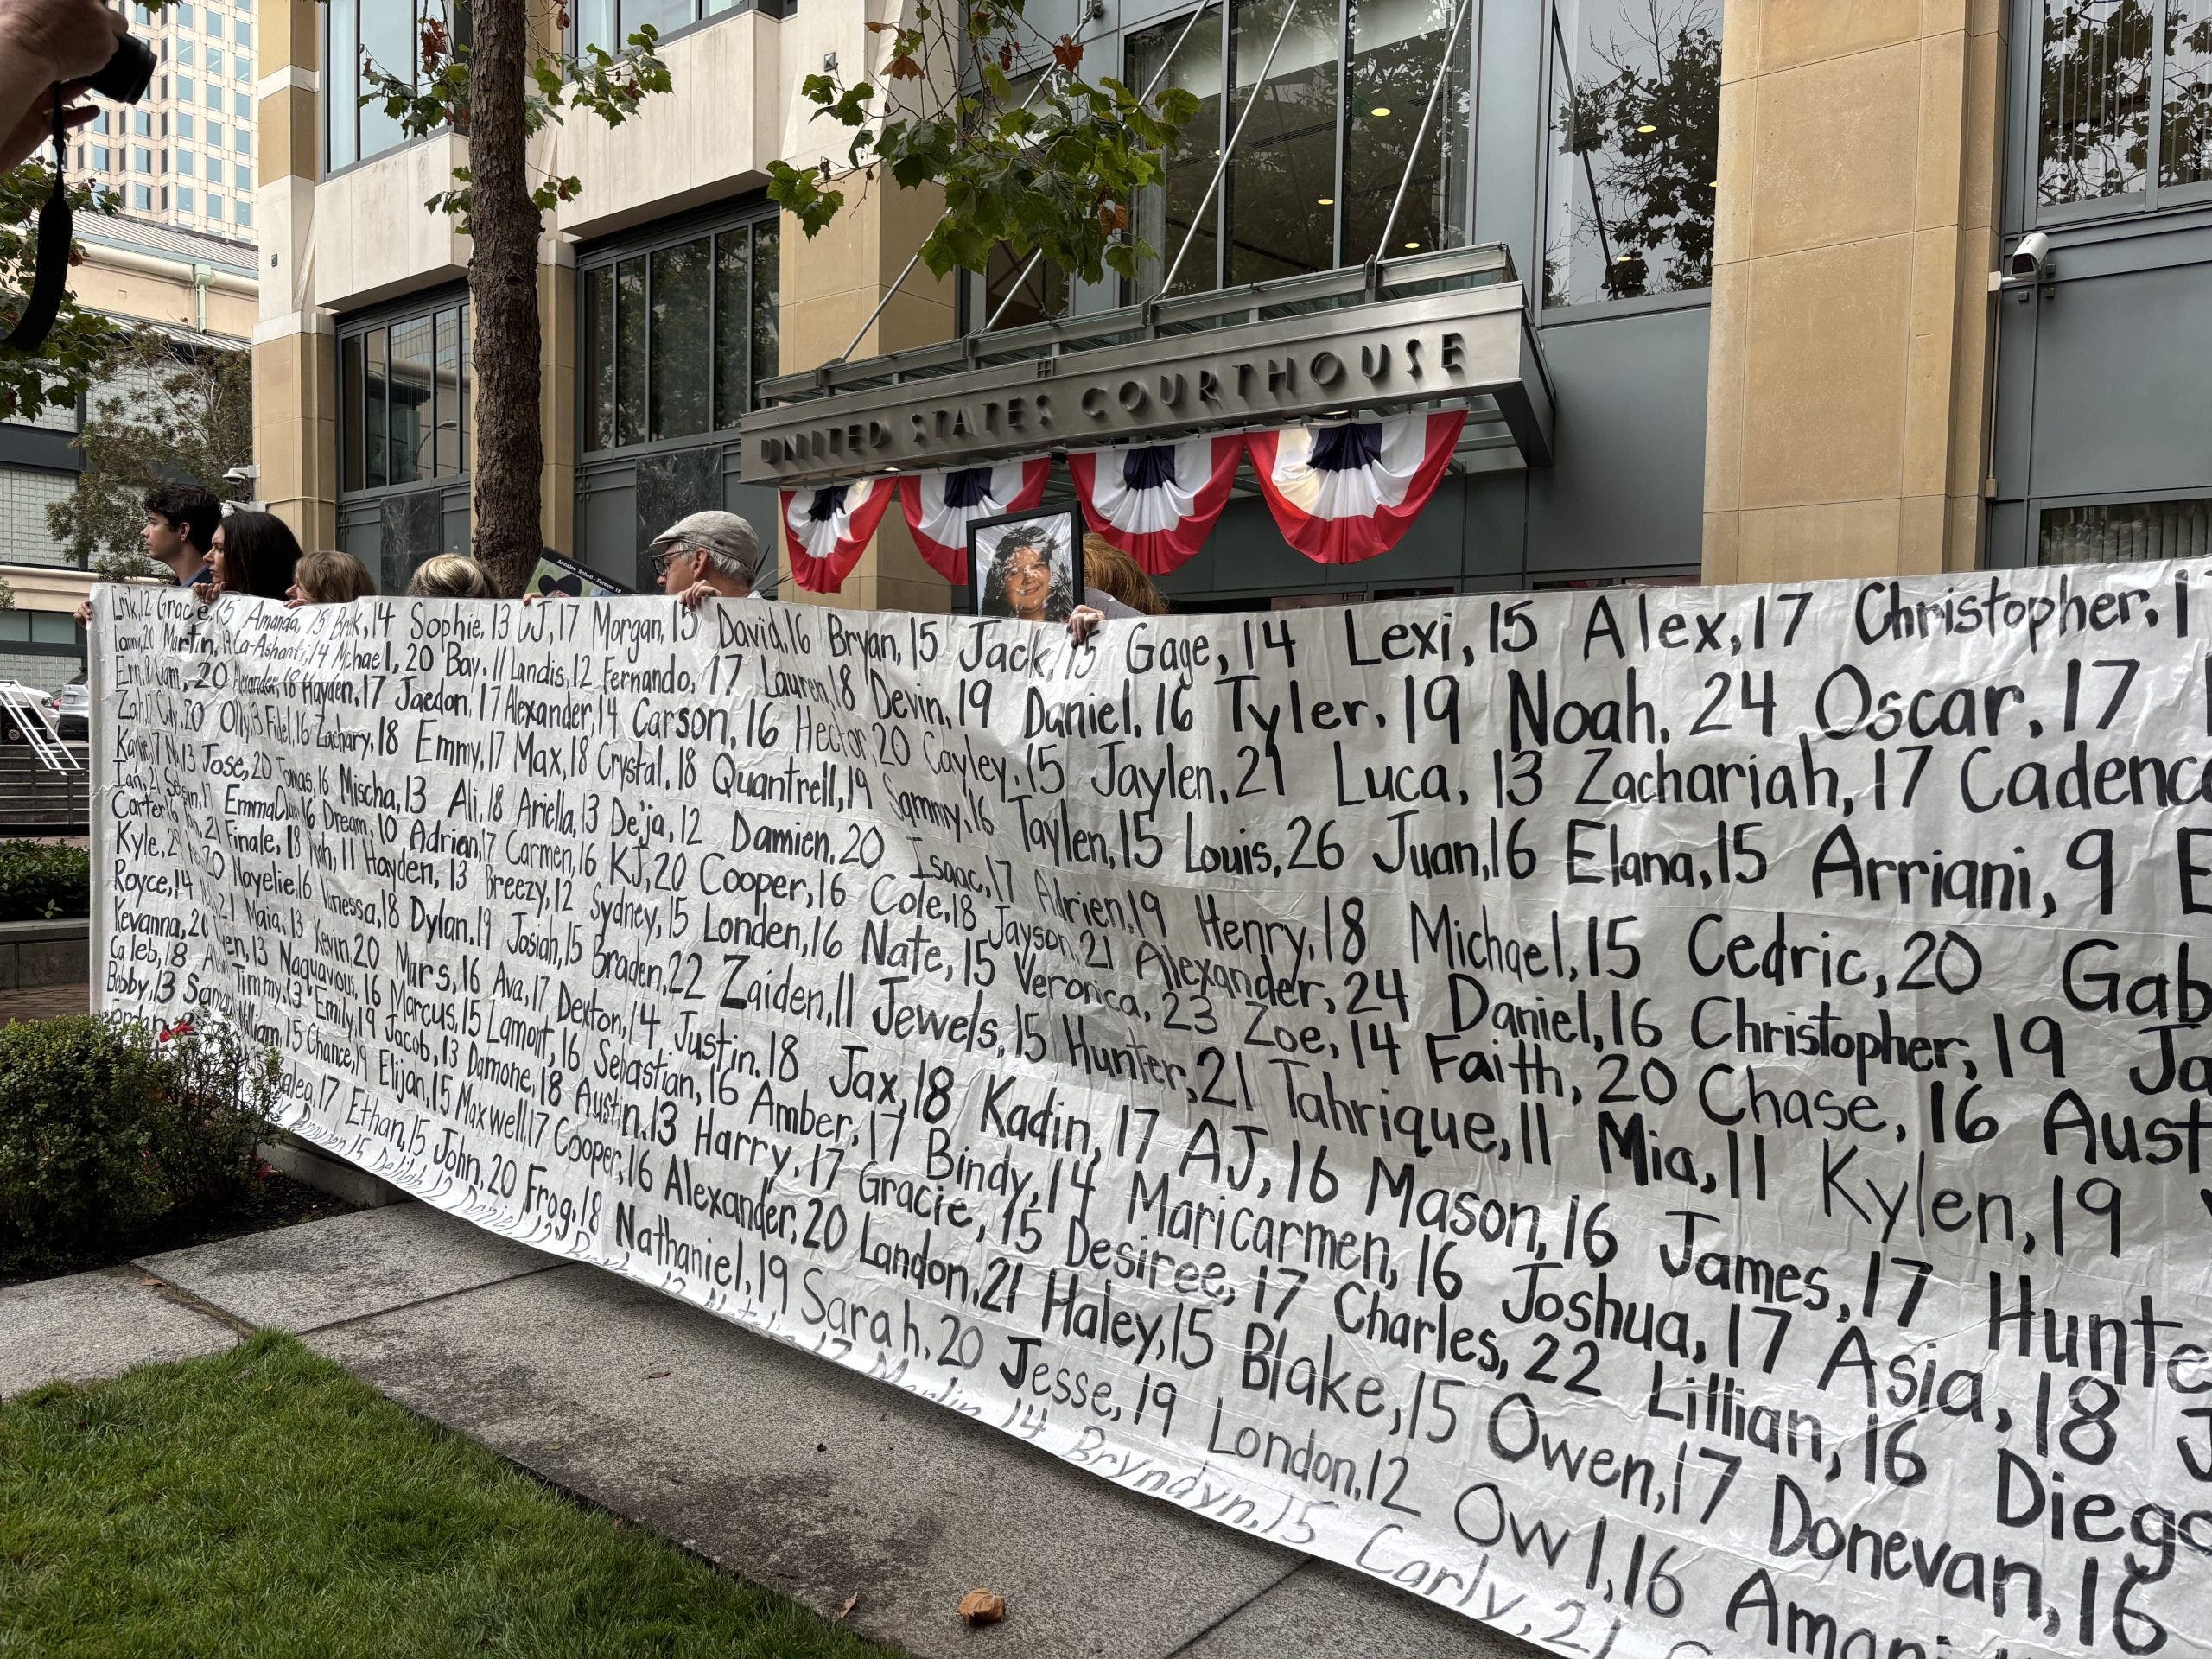 UNITED STATES COURTHOUSE
Forever 18
Link,12 Gracie,15 Amanda, 15 Brook,14 Sophie,13 CJ,17 Morgan,15 David,16 Bryan,15 Jack,15 Gage,14 Lexi,15 Alex,17 Christopher,
20 Martin, 14 Michael,20 Bay.11 Landis,12 Fernando, 17 Lauren,18 Devin,19 Daniel,16 Tyler,19 Noah,24 Oscar,17
20 Alexander,18 Hayden,17 Jaedon,17 Alexander,14 Carson,16 Hector,20 Cayley,15 Jaylen,21 Luca,13 Zachariah,17 Cadence
20 Olly,13 Fidel,16 Zachary,18 Emmy,17 Max,18 Crystal,18 Quantrell,19 Sammy,16 Taylen,15 Louis,26 Juan,16 Elana,15 Arriani,9 E
13 Jose,20 Tomas,16 Mischa,13 Ali,18 Ariella,13 De'ja,12 Damien.20 Isaac,17 Adrien,19 Henry,18 Michael,15 Cedric,20 Gab
Ian,21 17 16 Dream,10 Adrien,17 Carmen,16 KJ,20 Cooper,16 Cole,18 Jayson,21 Alexander,24 Daniel,16 Christopher,19 Ja
Carter,16 21 Finale,18 11 Hayden,13 Breezy,12 Sydney,15 Londen,16 Nate,15 Veronica,23 Zoe,14 Faith,20 Chase,16 Aust
Kyle, 20 Nayelie,16 Vanessa,18 Dylan.19 Josiah,15 Braden,22 Zaiden,11 Jewels,15 Hunter,21 Tahrique,11 Mia,11 Kylen,19
Royce,14 21 Naia,13 Kevin,20 Mars,16 Ava,17 Dexton,14 Justin.18 Jax,18 Kadin,17 AJ,16 Mason,16 James,17 Hunte
Kevanna,20 13 Naquavous,16 Marcus,15 Lamont,16 Sebastian,16 Amber,17 Bindy,14 Maricarmen,16 Joshua,17 Asia,18 J
Caleb,18 Timmy,13 Emily,19 Jacob,13 Damone,18 Austin.13 Harry,17 Gracie,15 Desiree,17 Charles,22 Lillian,16 Diego
Bobby,13 William,15 Chance,19 Elijah,15 Maxwell,17 Cooper,16 Alexander,20 Landon,21 Haley,15 Blake,15 Owen,17 Donevan,16
17 Ethan,15 John,20 Frog,18 Nathaniel,19 Sarah,20 Jesse,19 London,12 Owl,16 Amani
15 Delilah 14 Bryndyn,15 Carly,21